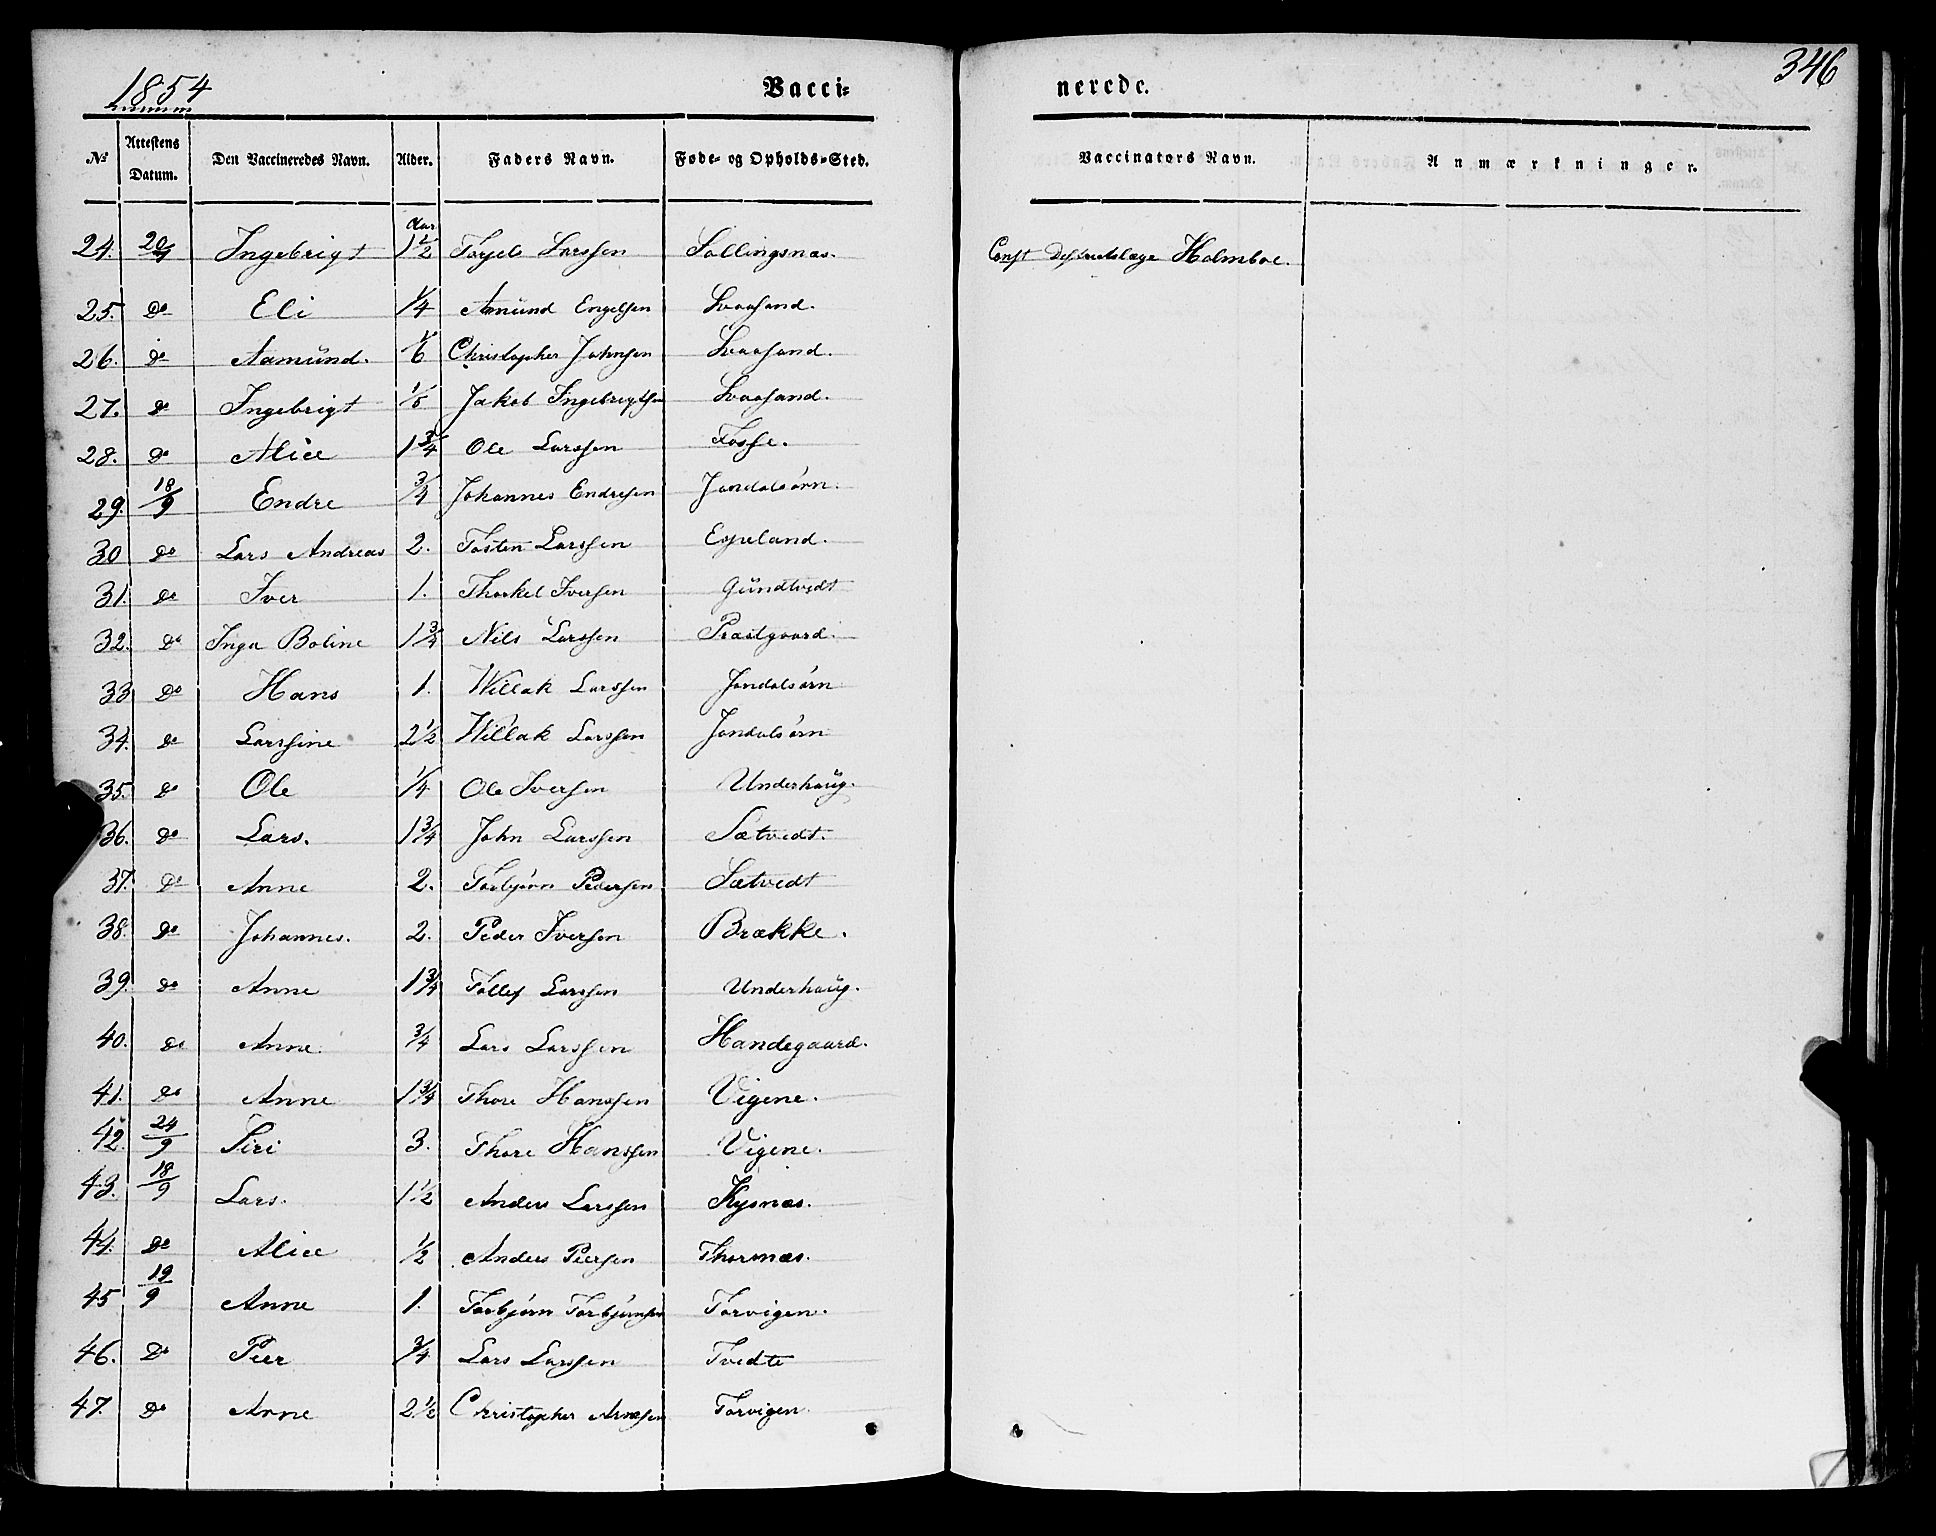 1854 Vacci- nerede. 346
No Attestens Datum. Den Vaccineredes Navn. Alder. Faders Navn. Føde- og Opholds-Sted. Vaccinators Navn. Anmærkninger.
Aar
24. 20/9 Ingebrigt 1 1/2 Torjels Larssen Sollingsnæs. Const Distriktslæge Holmboe.
25. do Eli 1/4 Amünd Engelsen Svaasand.
26. do Aamünd. 1/6 Christopher Johnsen Svaasand.
27. do Ingebrigt Jakob Ingebrigtsen Svaasand.
28. do Alice 1 3/4 Ole Larssen Fosse.
29. 18/9 Endre 3/4 Johannes Endresen Jondalsørn.
30 do Lars Andreas 2. Tosten Larssen Espeland.
31. do Iver 1. Thorkel Iversen Gündtvedt
32. do Inga Boline 1 3/4 Nils Larssen Præstgaard.
33 do Hans 1. Willak Larssen Jondalsørn
34. do Larssine 2 1/2 Willak Larssen Jondalsørn
35. do Ole 1/4 Ole Iversen Underhaüg.
36. do Lars. 1 3/4 John Larssen Sætvedt.
37. do Anne 2. Torbjørn Pedersen Sætvedt
38. do Johannes. 2. Peder Iversen Brække.
39. do Anne 1 3/4 Tollef Larssen Underhaüg.
40. do Anne 3/4 Lars Larssen Handegaard.
41. do Anne 1 3/4 Thore Hanssen Vigene.
42. 24/9 Siri 3. Thore Hanssen Vigene.
43. 18/9 Lars. 1 1/2 Anders Larssen Kysnæs.
44. do Alice 1/2 Anders Peersen Thornæs.
45 19/9 Anne 1. Torbjørn Torbjørnsen Torvigen.
46. do Peer 3/4 Lars Larssen Tvedte
47. do Anne 2 1/2 Christopher Arnesen Torvigen.